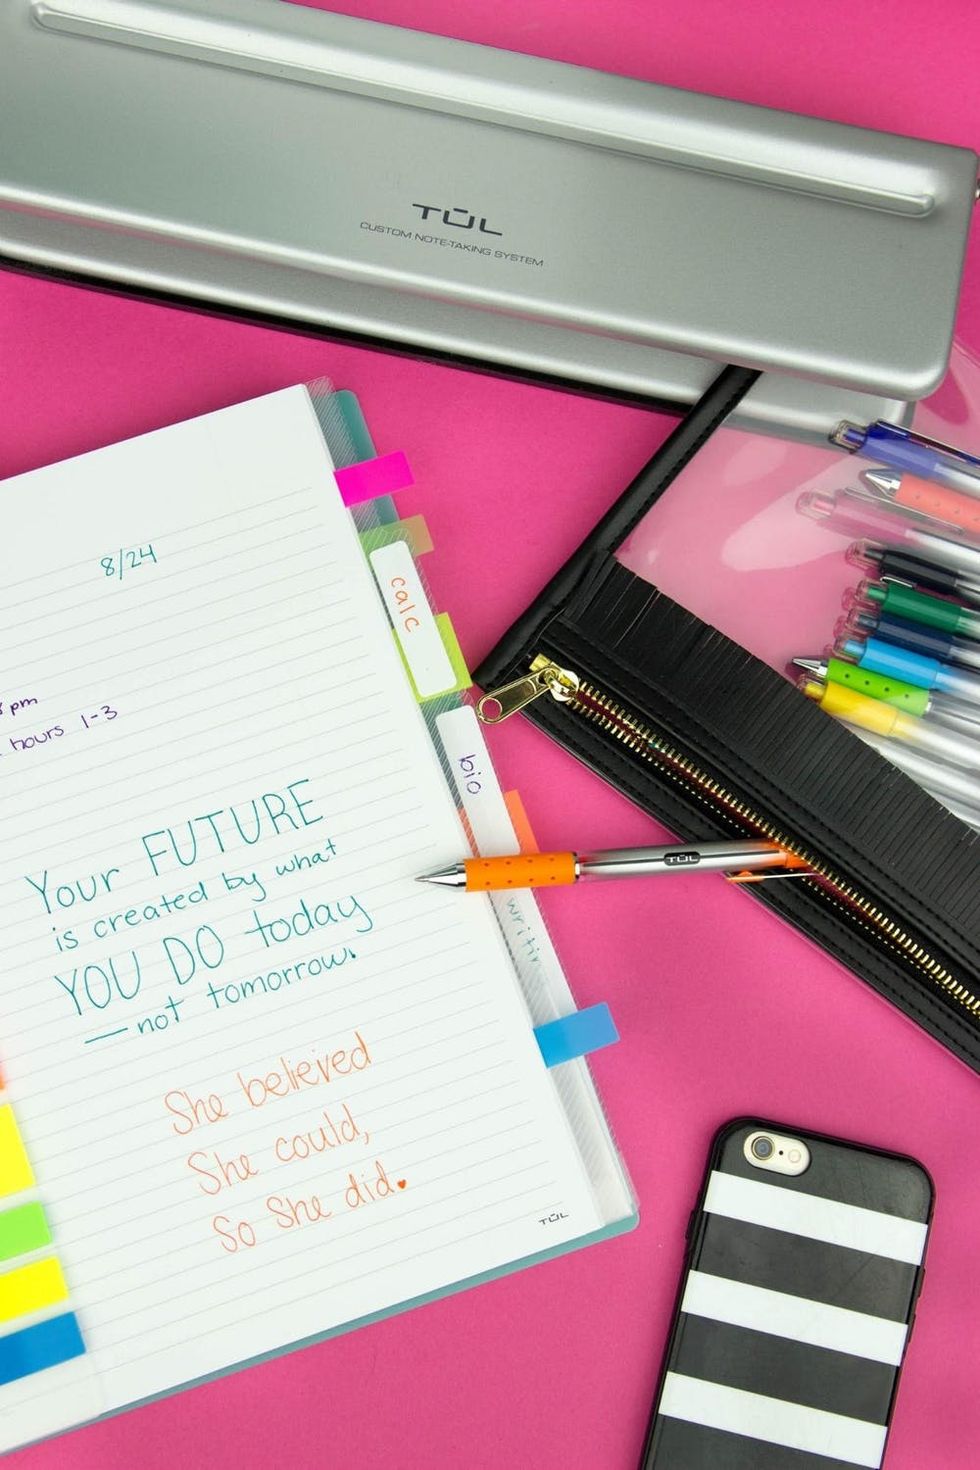 TŪL
CUSTOM NOTE-TAKING SYSTEM
8/24
calc
pm
hours 1-3
bio
Your FUTURE
is created by what
YOU DO today
—not tomorrow.
TŪL
She believed
She could,
So She did.
TŪL